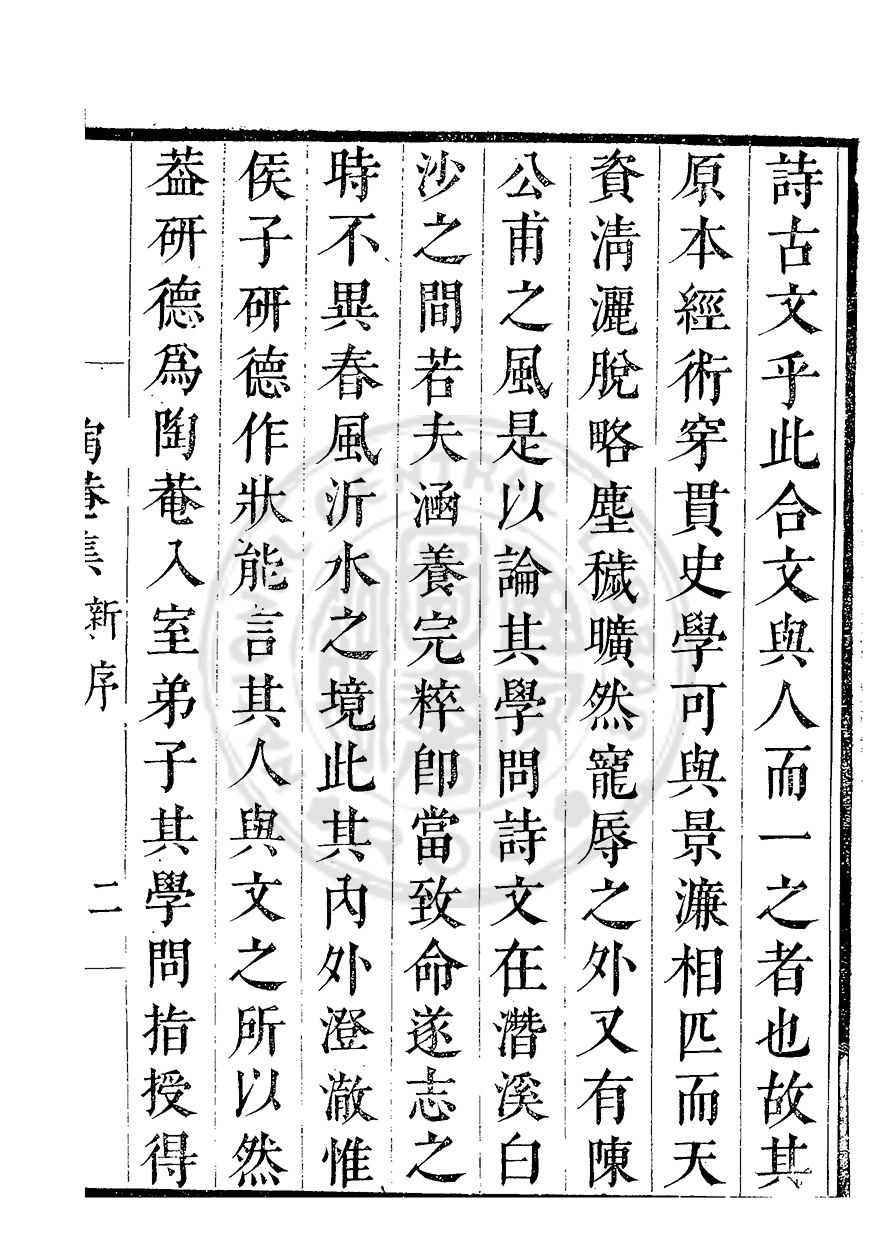 詩古文乎此合文與人而一之者也故其
原本經術穿貫史學可與景濂相匹而天
資淸灑脫略塵穢曠然寵辱之外又有陳
公甫之風是以論其學問詩文在濳溪白
沙之間若夫涵養完粹卽當致命遂志之
時不異春風沂水之境此其內外澄澈惟
侯子硏德作狀能言其人與文之所以然
葢硏德爲陶菴入室弟子其學問指授得
菴集 新序 二